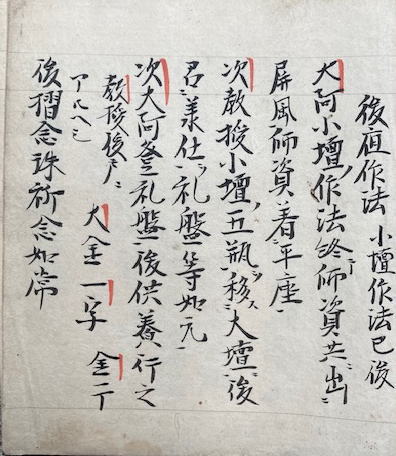 後夜作法 小壇作法已後
大阿小壇作法終師資共出
屏風師資着平座
次教授小壇五瓶移大壇後
召美仕礼盤等如元
次大阿登礼盤後供養行之
教授後戸ニ
アルヘシ 大金 一字 金一丁
後摺念珠祈念如常